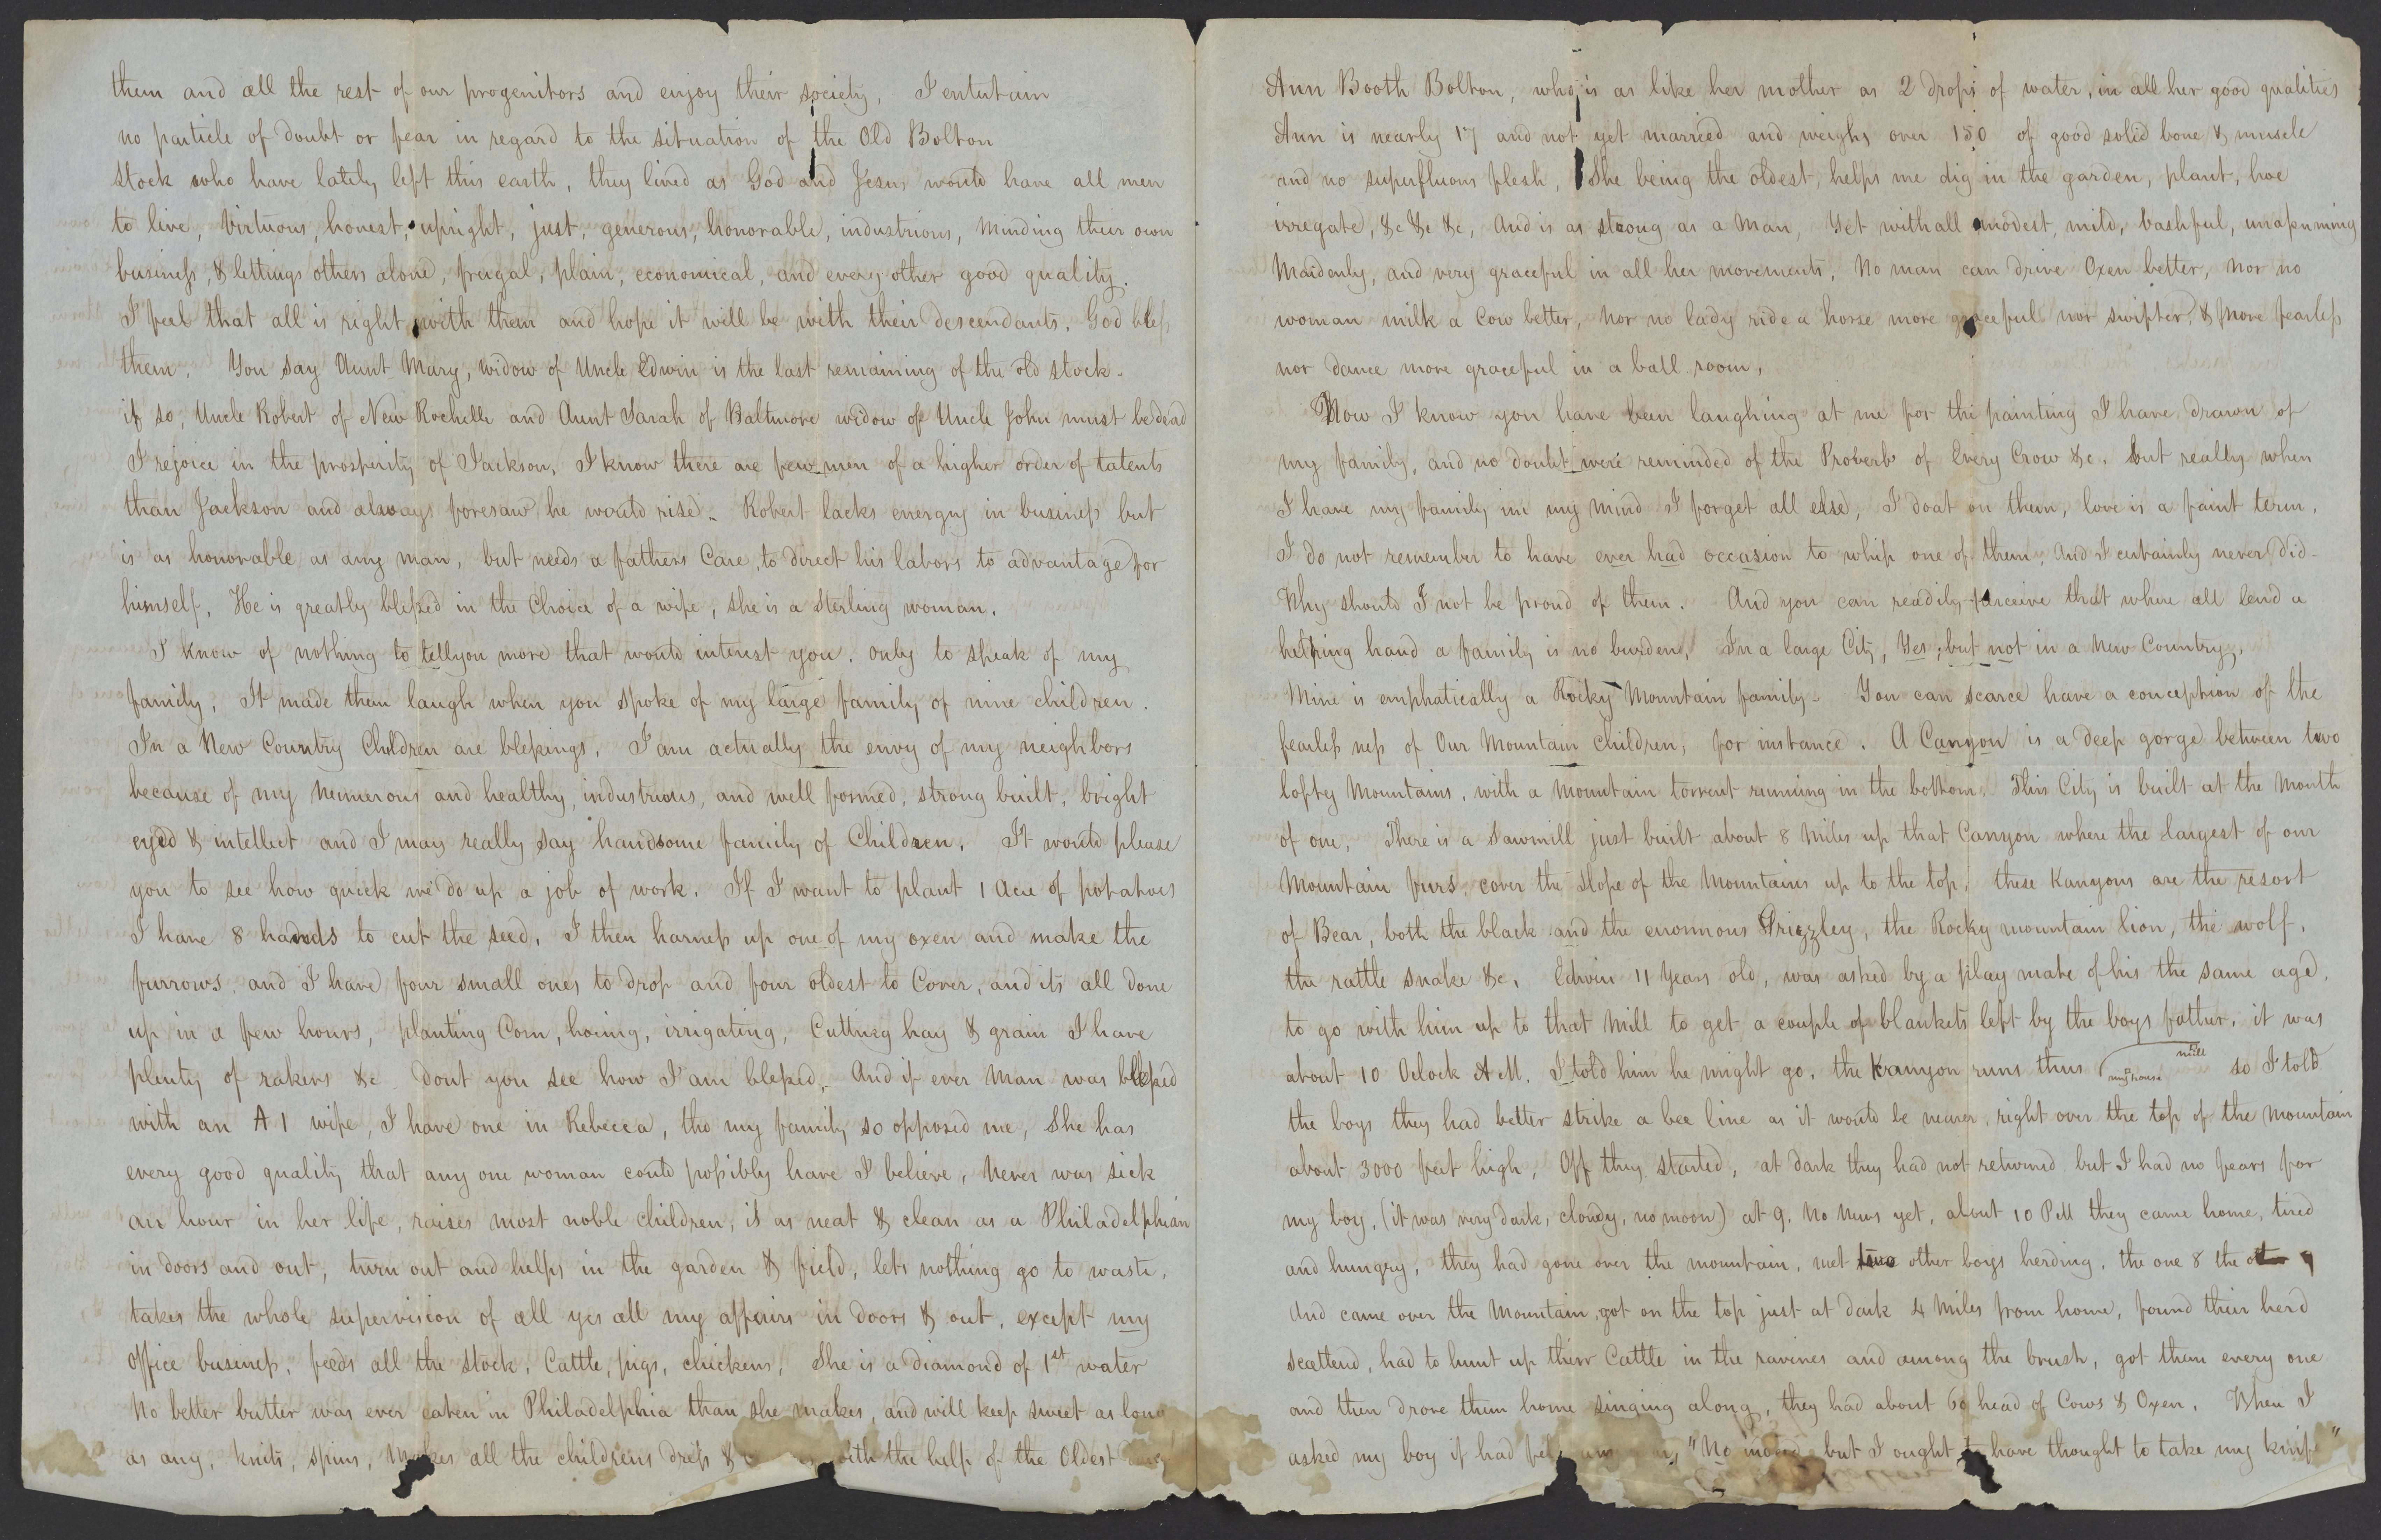 them and all the rest of our progenitors and enjoy their society, I entertain
no particle of doubt or fear in regard to the situation of the Old Bolton
stock who have lately left this earth, they lived as God and Jesus would have all men
to live, Virtuous, honest, upright, just, generous, honorable, industrious, Minding their own
business, & lettings others alone, frugal, plain, economical, and every other good quality.
I feel that all is right with them and hope it will be with their descendants. God bless
them. You say Aunt Mary, widow of Uncle Edwin is the last remaining of the old stock.
if so, Uncle Robert of New Rochelle and Aunt Sarah of Baltimore widow of Uncle John must be dead
I rejoice in the prosperity of Jackson, I know there are few men of a higher order of talents
than Jackson and always foresaw he would rise. Robert lacks energy in business but
is as honorable as any man, but needs a fathers Care, to direct his labors to advantage for
himself. He is greatly blessed in the Choice of a wife, she is a Sterling woman.
I know of nothing to tell you more that would interest you. only to speak of my
family. It made them laugh when you spoke of my large family of nine children.
In a New Country Children are blessings. I am actually the envy of my neighbors
because of my Numerous and healthy, industrious, and well formed, strong built, bright
eyed & intellect and I may really say handsome family of Children. It would please
you to see how quick we do up a job of work. If I want to plant 1 Acre of potatoes
I have 8 hands to cut the seed. I then harness up one of my oxen and make the
furrows. and I have four small ones to drop and four oldest to Cover, and its all done
up in a few hours, planting Corn, hoing, irrigating, Cutting hay & grain I have
plenty of rakers &c Dont you see how I am blessed. And if ever Man was blessed
with an A 1 wife, I have one in Rebecca, tho my family so opposed me, She has
every good quality that any one woman could possibly have I believe, Never was sick
an hour in her life, raises most noble children, is as neat & clean as a Philadelphian
in doors and out, turn out and helps in the garden & field, lets nothing go to waste,
takes the whole supervision of all yes all my affairs in doors & out, except my
Office business, feeds all the stock, Cattle, pigs, chickens, She is a diamond of 1st water
No better butter was ever eaten in Philadelphia than she makes, and will keep sweet as long
as any, knits, spins, Makes all the childrens dress & with the help of the Oldest
Ann Booth Bolton, who is as like her mother as 2 drops of water, in all her good qualities
Ann is nearly 17 and not yet married and weighs over 150 of good solid bone & muscle
and no superfluous flesh, She being the oldest, helps me dig in the garden, plant, hoe
irregate, &c &c &c, And is as strong as a Man, Yet withall modest, mild, bashful, unassuming
Maidenly, and very graceful in all her movements, No man can drive Oxen better, Nor no
woman milk a Cow better, Nor no lady ride a horse more graceful nor swifter, & More fearless
nor dance more graceful in a ball room,
Now I know you have been laughing at me for the painting I have drawn of
my family, and no doubt were reminded of the Proverb of Every Crow &c. but really when
I have my family in my Mind I forget all else, I doat on them, love is a faint term,
I do not remember to have ever had occasion to whip one of them, And I certainly never did.
Why should I not be proud of them. And you can readily perceive that where all lend a
helping hand a family is no burden, In a large City, Yes, but not in a New Country,
Mine is emphatically a Rocky Mountain family. You can scarce have a conception of the
fearless ness of Our Mountain Children, for instance. A Canyon is a deep gorge between two
loftey Mountains, with a Mountain torrent running in the bottom. This City is built at the Mouth
of one, There is a Sawmill just built about 8 Miles up that Canyon where the largest of our
Mountain furs, cover the Slope of the Mountains up to the top. these Kanyons are the resort
of Bear, both the black and the enormous Grizzley, the Rocky mountain lion, the wolf,
the rattle snake &c. Edwin 11 Years old, was asked by a play mate of his the same age,
to go with him up to that Mill to get a couple of blankets left by the boys father. it was
about 10 Oclock A M. I told him he might go. the Kanyon runs thus my house mill so I told
the boys they had better strike a bee line as it would be nearer, right over the top of the Mountain
about 3000 feet high, Off they started, at dark they had not returned but I had no fears for
my boy, (it was very dark, cloudy, no moon) at 9. No News yet, about 10 P M they came home, tired
and hungry, they had gone over the mountain, met two other boys herding, the one 8 the ot 9
And came over the Mountain, got on the top just at dark 4 Miles from home, found their herd
scattered, had to hunt up their Cattle in the ravines and among the brush, got them every one
and then drove them home singing along, they had about 60 head of Cows & Oxen. When I
asked my boy if had "No but I ought to have thought to take my knife"